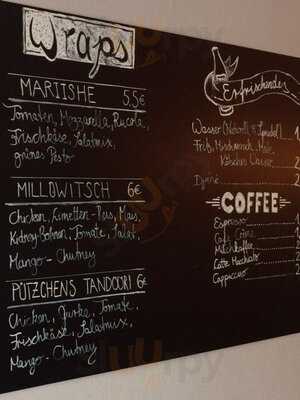 Wraps
MARIISHE 5,5€
Tomaten, Mozzarella, Rucola,
Frischkäse, Salatmix,
grünes Pesto
MILLOWITSCH 6€
Chicken, Limetten-Reis, Mais,
Kidney Bohnen, Tomate, Salat,
Mango-Chutney
PÜTZCHENS TANDOORI 6€
Chicken, Gurke, Tomate,
Frischkäse, Salatmix,
Mango-Chutney
Erfrischendes
Wasser (Naturell &
Fritz,
Kölsches Wasser 2
2
COFFEE
Espresso
Café Crème
Milchkaffee
Latte Macchiato 2
Cappuccino 2